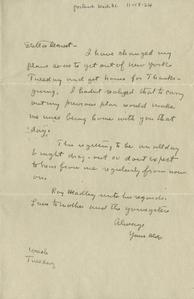 Portland Mich. 11-17-24
Stella Dearest -
I have changed my
plans so as to get out of New York
Tuesday and get home for Thanks-
giving. I hadn't realized that to carry
out my previous plan would make
me miss being home with you that
day.
This is going to be an all day
& night drag - so don't expect
to hear from me regularly from now
on.
Roy Headley sends his regards.
Love to mother and the youngsters
Always
Your
Tuesday